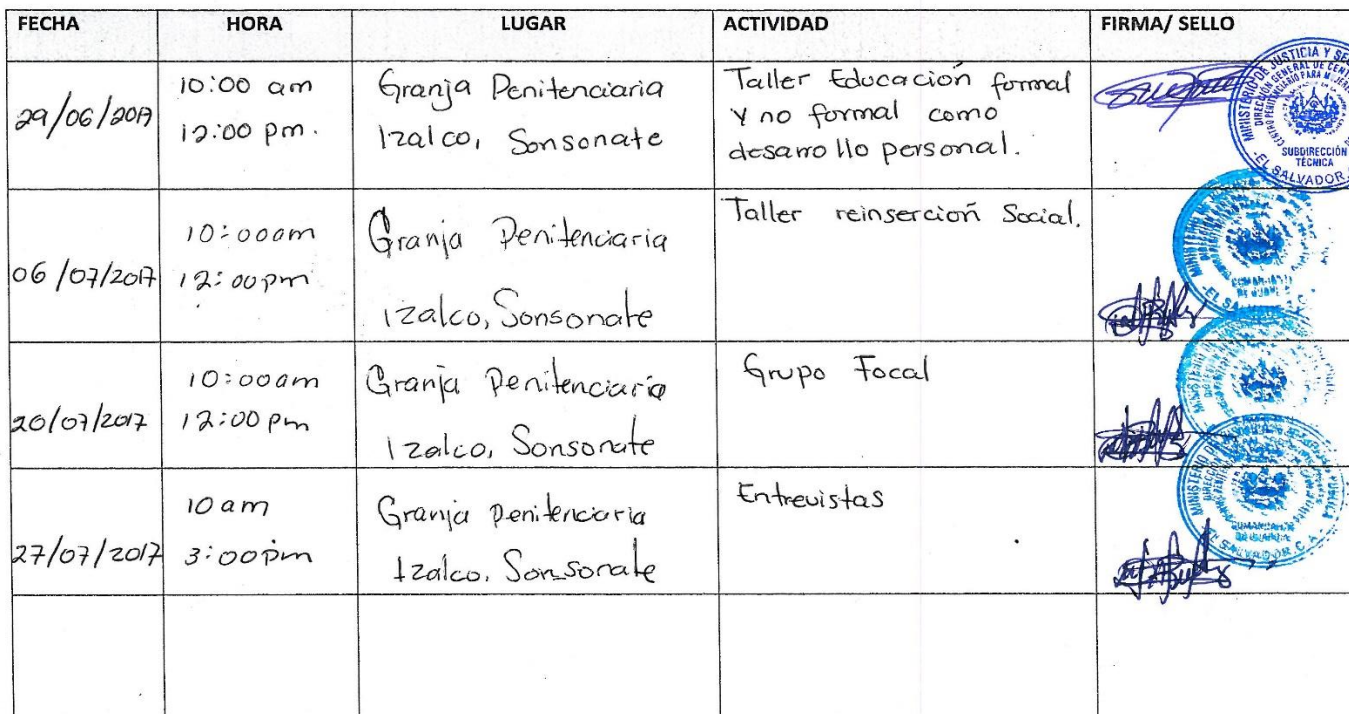 FECHA HORA LUGAR ACTIVIDAD FIRMA/ SELLO
29/06/2017
10:00 am
12:00 pm.
Granja Penitenciaria
Izalco, Sonsonate
Taller Educación formal
y no formal como
desarrollo personal.
SUBDIRECCIÓN
TÉCNICA
EL SALVADOR
06/07/2017
10:00am
12:00pm
Granja Penitenciaria
Izalco, Sonsonate
Taller reinserción Social.
20/07/2017
10:00am
12:00 pm
Granja Penitenciaria
Izalco, Sonsonate
Grupo Focal
27/07/2017
10 am
3:00pm
Granja Penitenciaria
Izalco, Sonsonate
Entrevistas